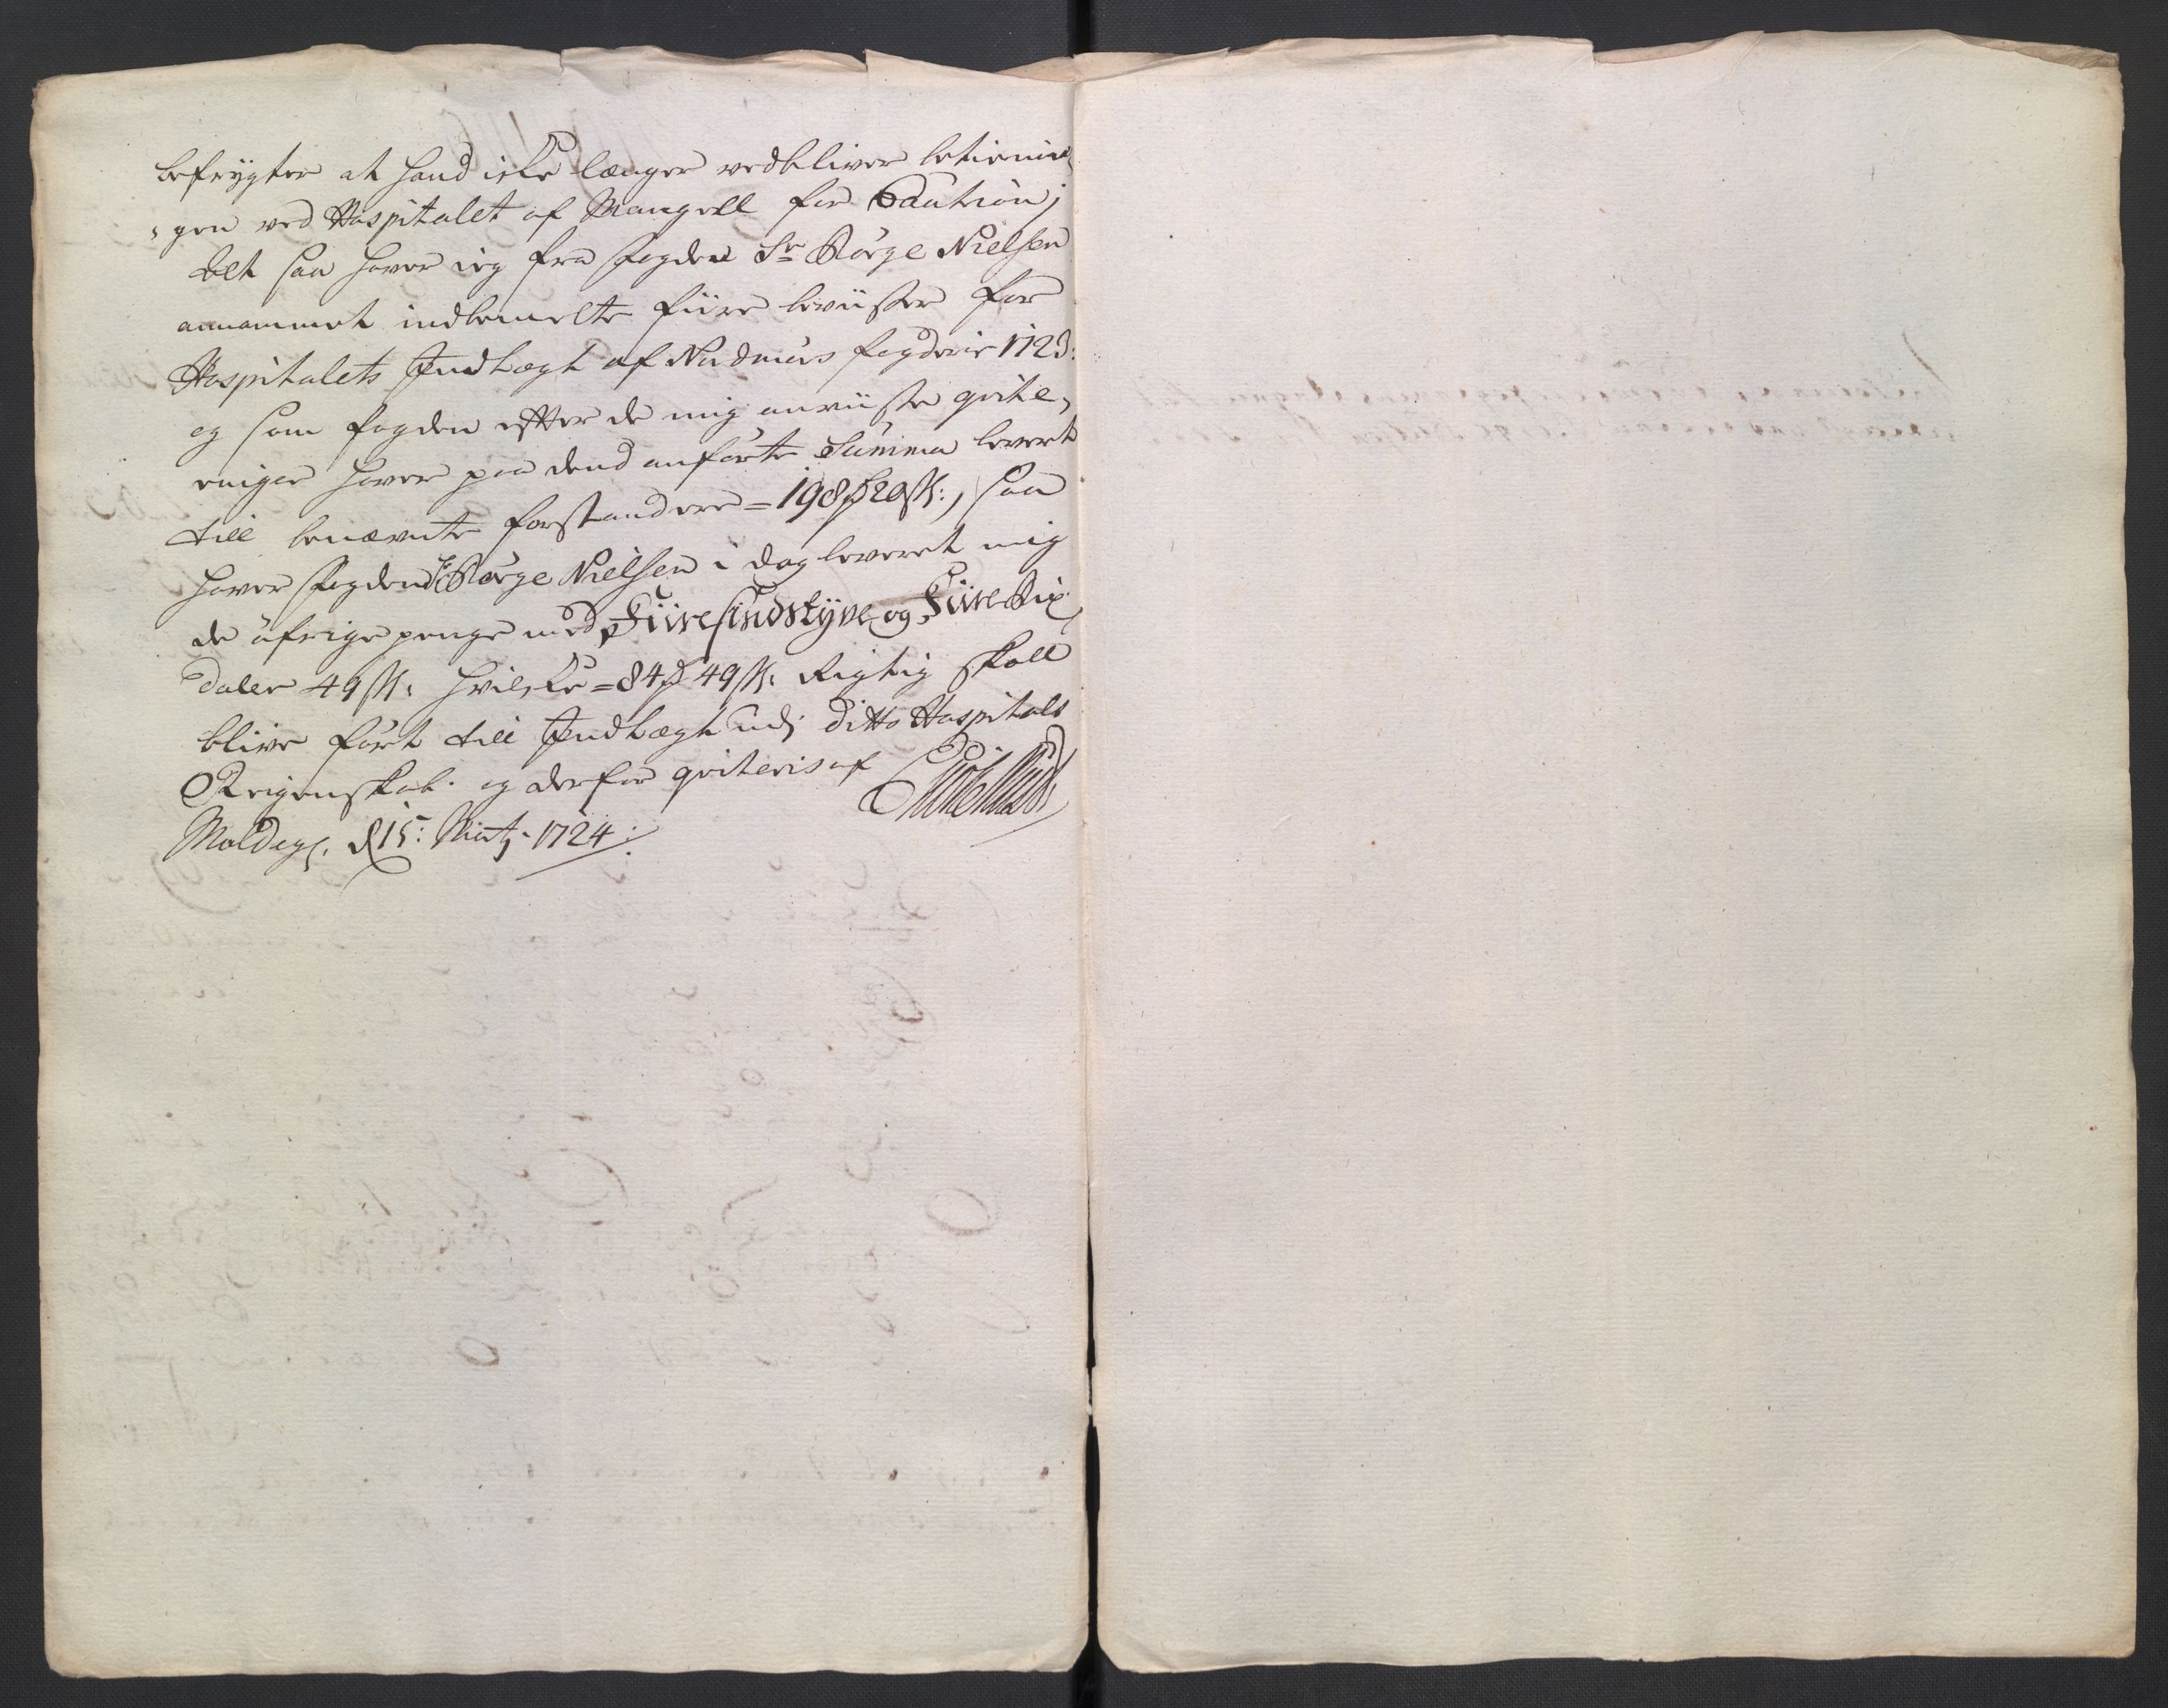 befrygter at hand icke længer vedbliver betienin-
gen ved Hospitalet af Mangell for Caution;
alt saa haver ieg fra fogden Sr Børge Nielsen
annammet indbemelte fiire beviister for
Hospitalets Indtægt af Nordmørs fogderie 1723:
og som fogden efter de mig anviiste qvite-
ringer haver paa dend anførte Summa levert
till benævnte forstandere = 198 20 s:, saa
haver fogden Sr Børge Nielsen i dag leveret mig
de øfrige penge med Fiiresindstyve og Fiire Rix
daler 49 s: hvilke = 84 49 s: Rigtig skall
blive ført till Indtægt udj ditto Hospitals
Reigenskab. og derfor qviteris af
Molde d 15: Martj 1724: